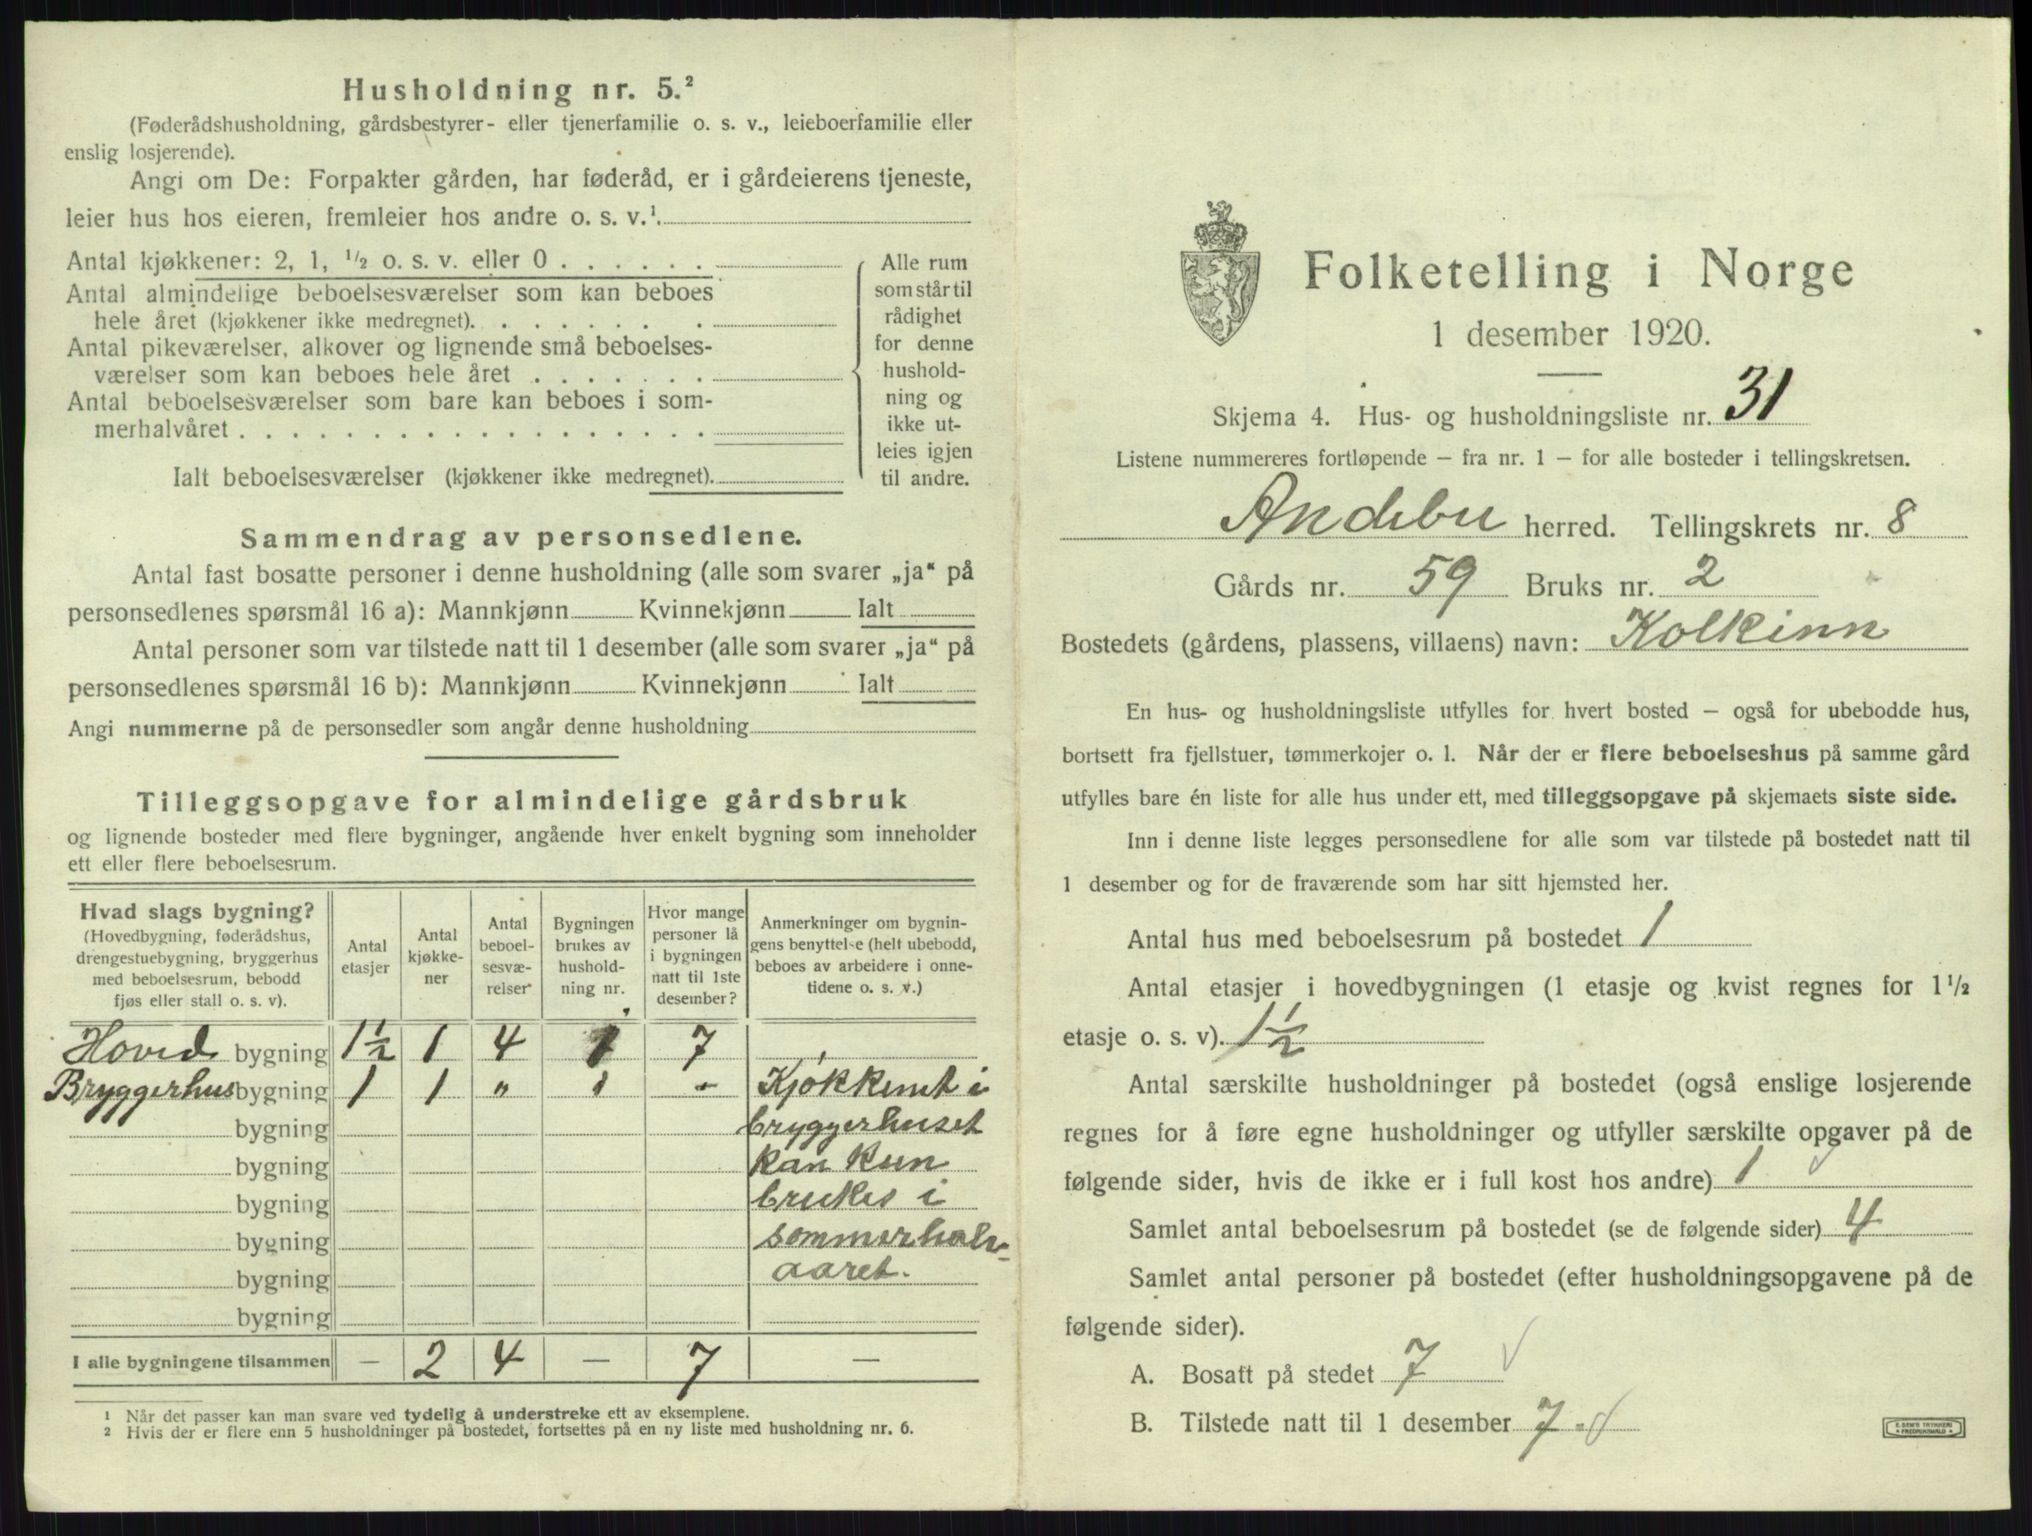 Husholdning nr. 5.²
(Føderådshusholdning, gårdsbestyrer- eller tjenerfamilie o. s. v., leieboerfamilie eller
enslig losjerende).
Angi om De: Forpakter gården, har føderåd, er i gårdeierens tjeneste,
leier hus hos eieren, fremleier hos andre o. s. v.¹
Antal kjøkkener: 2, 1, ½ o. s. v. eller 0 . . . . . .
Antal almindelige beboelsesværelser som kan beboes
hele året (kjøkkener ikke medregnet). . . . . . . .
Antal pikeværelser, alkover og lignende små beboelses-
værelser som kan beboes hele året . . . . . . .
Antal beboelsesværelser som bare kan beboes i som-
merhalvåret . . . . . . . . . . . . . . . . . .
Ialt beboelsesværelser (kjøkkener ikke medregnet).
Alle rum
som står til
rådighet
for denne
hushold-
ning og
ikke ut-
leies igjen
til andre.
Sammendrag av personsedlene.
Antal fast bosatte personer i denne husholdning (alle som svarer „ja“ på
personsedlenes spørsmål 16 a): Mannkjønn Kvinnekjønn Ialt
Antal personer som var tilstede natt til 1 desember (alle som svarer „ja“ på
personsedlenes spørsmål 16 b): Mannkjønn Kvinnekjønn Ialt
Angi nummerne på de personsedler som angår denne husholdning
Tilleggsopgave for almindelige gårdsbruk
og lignende bosteder med flere bygninger, angående hver enkelt bygning som inneholder
ett eller flere beboelsesrum.
Hvad slags bygning?
(Hovedbygning, føderådshus,
drengestuebygning, bryggerhus
med beboelsesrum, bebodd
fjøs eller stall o. s. v).
Antal
etasjer
Antal
kjøkke-
ner
Antal
beboel-
sesvæ-
relser
Bygningen
brukes av
hushold-
ning nr.
Hvor mange
personer lå
i bygningen
natt til 1ste
desember?
Anmerkninger om bygnin-
gens benyttelse (helt ubebodd,
beboes av arbeidere i onne-
tidene o. s. v.)
Hoved bygning 1½ 1 4 1 7
Bryggerhus bygning 1 1 „ 1 - Kjøkkenet i
bygning bryggerhuset
bygning kan kun
bygning brukes i
bygning sommerhalv-
bygning aaret.
bygning
I alle bygningene tilsammen — 2 4 — 7 —
¹ Når det passer kan man svare ved tydelig å understreke ett av eksemplene.
² Hvis der er flere enn 5 husholdninger på bostedet, fortsettes på en ny liste med husholdning nr. 6.
Folketelling i Norge
1 desember 1920.
Skjema 4. Hus- og husholdningsliste nr. 31
Listene nummereres fortløpende – fra nr. 1 – for alle bosteder i tellingskretsen.
Andebu herred. Tellingskrets nr. 8
Gårds nr. 59 Bruks nr. 2
Bostedets (gårdens, plassens, villaens) navn: Kolkinn
En hus- og husholdningsliste utfylles for hvert bosted – også for ubebodde hus,
bortsett fra fjellstuer, tømmerkojer o. l. Når der er flere beboelseshus på samme gård
utfylles bare én liste for alle hus under ett, med tilleggsopgave på skjemaets siste side.
Inn i denne liste legges personsedlene for alle som var tilstede på bostedet natt til
1 desember og for de fraværende som har sitt hjemsted her.
Antal hus med beboelsesrum på bostedet 1
Antal etasjer i hovedbygningen (1 etasje og kvist regnes for 1½
etasje o. s. v). 1½
Antal særskilte husholdninger på bostedet (også enslige losjerende
regnes for å føre egne husholdninger og utfyller særskilte opgaver på de
følgende sider, hvis de ikke er i full kost hos andre) 1 ✓
Samlet antal beboelsesrum på bostedet (se de følgende sider) 4
Samlet antal personer på bostedet (efter husholdningsopgavene på de
følgende sider).
A. Bosatt på stedet 7 ✓
B. Tilstede natt til 1 desember 7 ✓
E. SEM'S TRYKKERI
FREDRIKSHALD